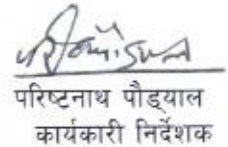 परिष्टनाथ पौड्याल
कार्यकारी निर्देशक